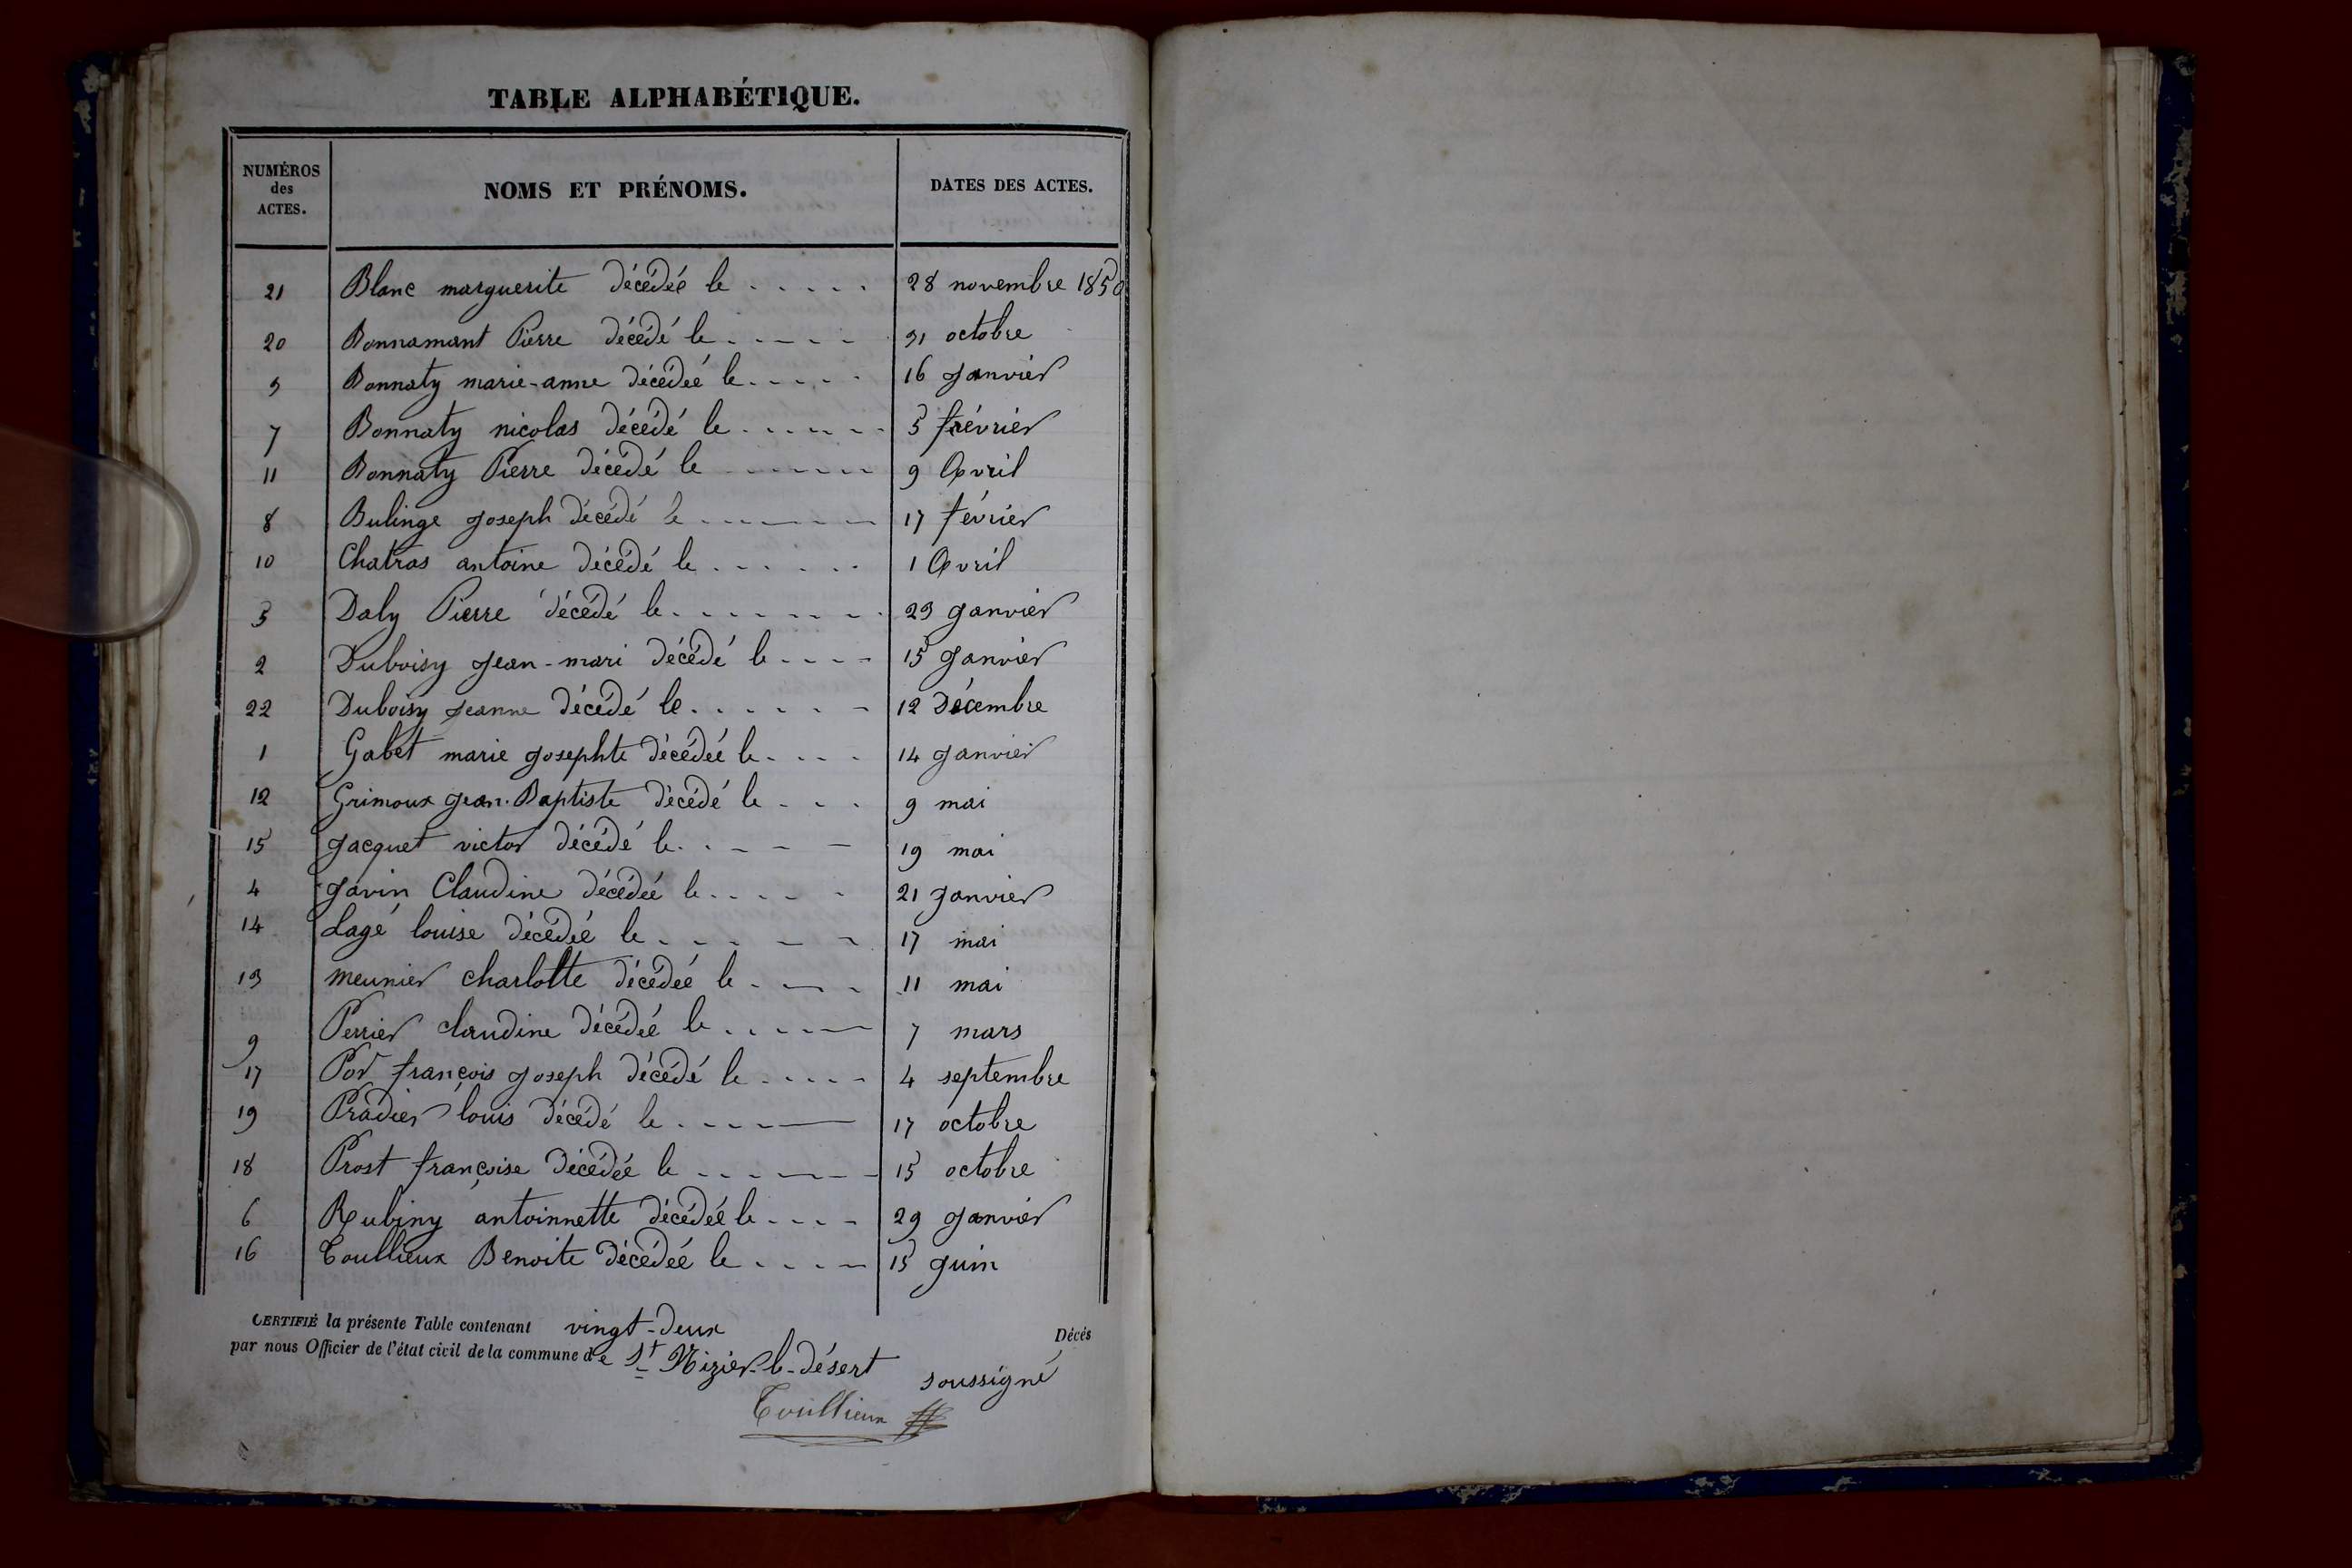 TABLE ALPHABÉTIQUE.
NUMÉROS des ACTES. NOMS ET PRÉNOMS. DATES DES ACTES.
21 Blanc marguerite décédée le 28 novembre 1850
20 Bonnamant Pierre décédé le 31 octobre
3 Bonnaty marie-anne décédée le 16 janvier
7 Bonnaty nicolas décédé le 5 février
11 Bonnaty Pierre décédé le 9 Avril
8 Bulinge joseph décédé le 17 février
10 Chatras antoine décédé le 1 Avril
5 Daly Pierre décédé le 23 janvier
2 Duboisy jean-mari décédé le 15 janvier
22 Duboisy jeanne décédé le 12 Décembre
1 Gabet marie josephte décédée le 14 janvier
12 Grimoux jean-Baptiste décédé le 9 mai
15 jacquet victor décédé le 19 mai
4 javin Claudine décédée le 21 janvier
14 Lagé louise décédée le 17 mai
13 meunier charlotte décédée le 11 mai
9 Perrier claudine décédée le 7 mars
17 Por françois joseph décédé le 4 septembre
19 Pradier louis décédé le 17 octobre
18 Prost françoise décédée le 15 octobre
6 Rubiny antoinnette décédée le 29 janvier
16 Toullieux Benoite décédée le 15 juin
CERTIFIÉ la présente Table contenant vingt-deux Décès
par nous Officier de l'état civil de la commune de St Nizier-le-désert soussigné
Toullieux